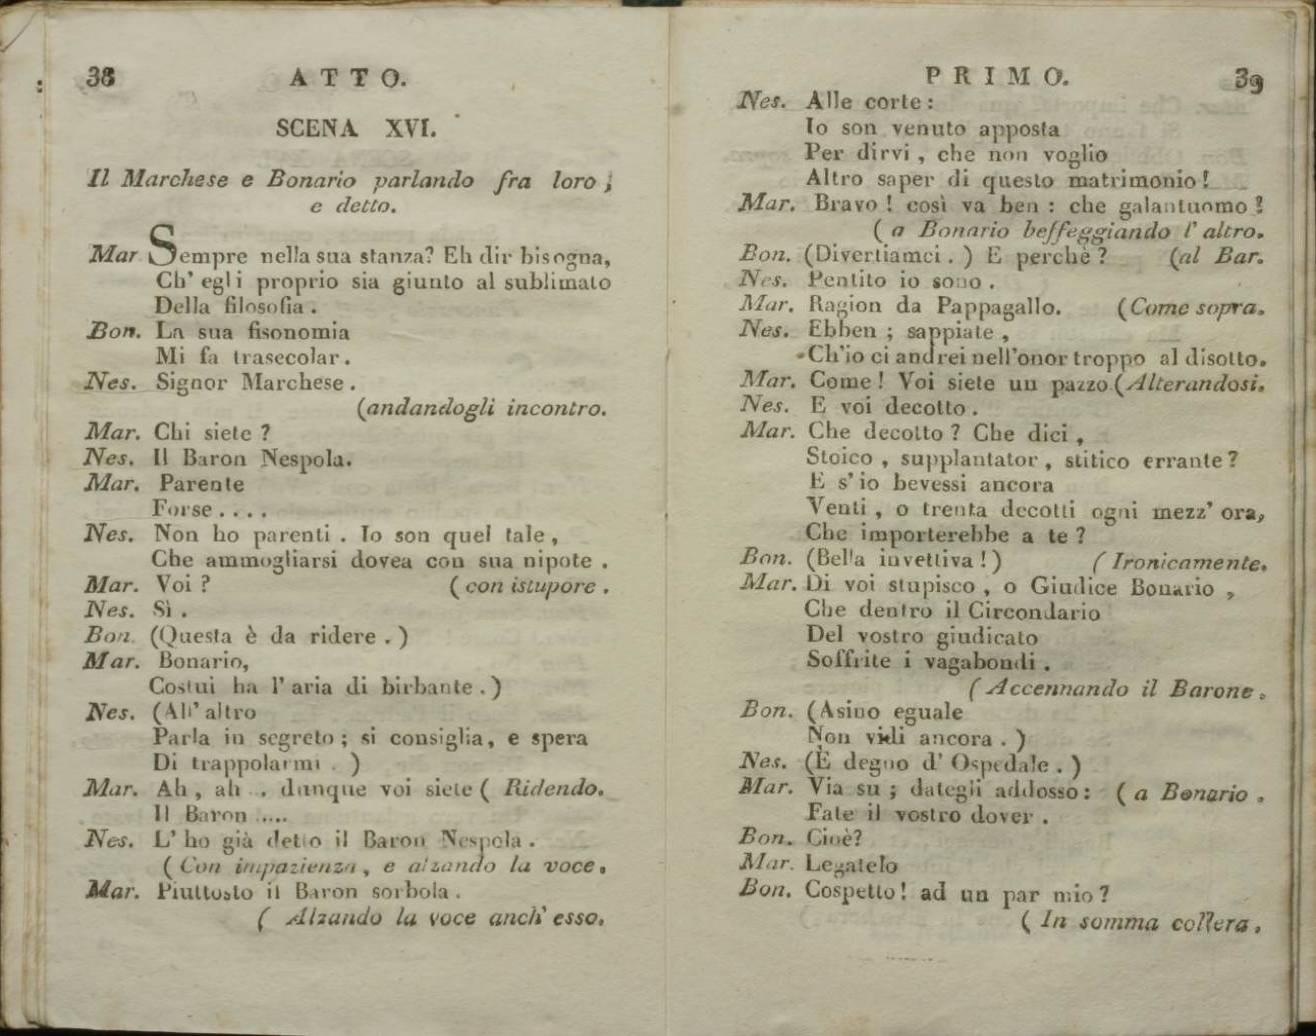 38 ATTO.
SCENA XVI.
Il Marchese e Bonario parlando fra loro ;
e detto.
Mar Sempre nella sua stanza? Eh dir bisogna,
Ch' egli proprio sia giunto al sublimato
Della filosofia .
Bon. La sua fisonomia
Mi fa trasecolar .
Nes. Signor Marchese .
(andandogli incontro.
Mar. Chi siete ?
Nes. Il Baron Nespola.
Mar. Parente
Forse . . . .
Nes. Non ho parenti . Io son quel tale ,
Che ammogliarsi dovea con sua nipote .
Mar. Voi ? ( con istupore .
Nes. Sì .
Bon. (Questa è da ridere . )
Mar. Bonario,
Costui ha l' aria di birbante . )
Nes. (All' altro
Parla in segreto ; si consiglia, e spera
Di trappolarmi . )
Mar. Ah , ah . . dunque voi siete ( Ridendo.
Il Baron ....
Nes. L' ho già detto il Baron Nespola .
( Con impazienza , e alzando la voce .
Mar. Piuttosto il Baron sorbola .
( Alzando la voce anch' esso.
PRIMO. 39
Nes. Alle corte :
Io son venuto apposta
Per dirvi , che non voglio
Altro saper di questo matrimonio !
Mar. Bravo ! così va ben : che galantuomo !
( a Bonario beffeggiando l' altro.
Bon. (Divertiamci . ) E perchè ? (al Bar.
Nes. Pentito io sono .
Mar. Ragion da Pappagallo. (Come sopra.
Nes. Ebben ; sappiate ,
Ch'io ci andrei nell'onor troppo al disotto.
Mar. Come ! Voi siete un pazzo (Alterandosi.
Nes. E voi decotto .
Mar. Che decotto ? Che dici ,
Stoico , supplantator , stitico errante ?
E s' io bevessi ancora
Venti , o trenta decotti ogni mezz' ora,
Che importerebbe a te ?
Bon. (Bella invettiva ! ) ( Ironicamente.
Mar. Di voi stupisco , o Giudice Bonario ,
Che dentro il Circondario
Del vostro giudicato
Soffrite i vagabondi .
( Accennando il Barone .
Bon. (Asino eguale
Non vidi ancora . )
Nes. (È degno d' Ospedale . )
Mar. Via su ; dategli addosso : ( a Bonario .
Fate il vostro dover .
Bon. Cioè?
Mar. Legatelo
Bon. Cospetto ! ad un par mio ?
( In somma collera .